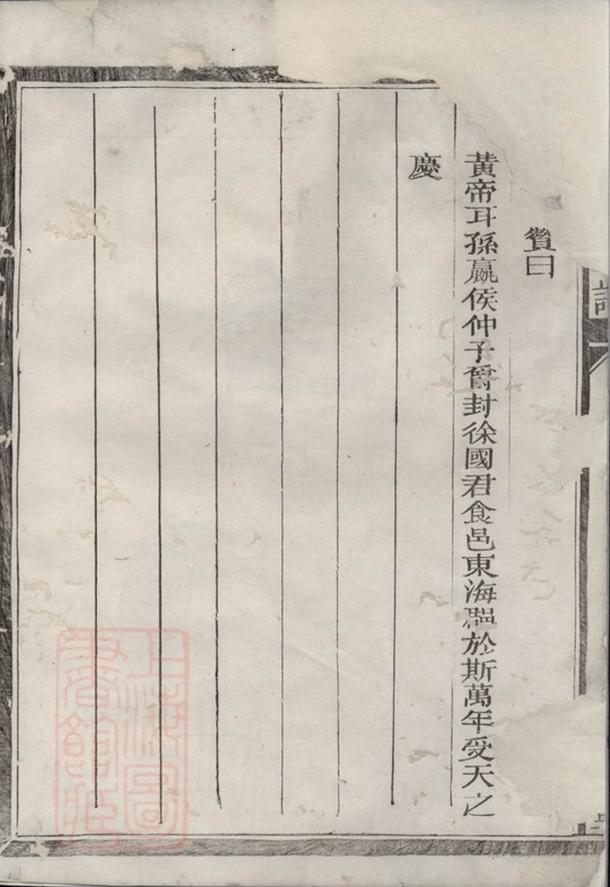 贊曰
黃帝耳孫嬴侯仲子爵封徐國君食邑東海郡於斯萬年受天之
慶
上海圖
書館藏